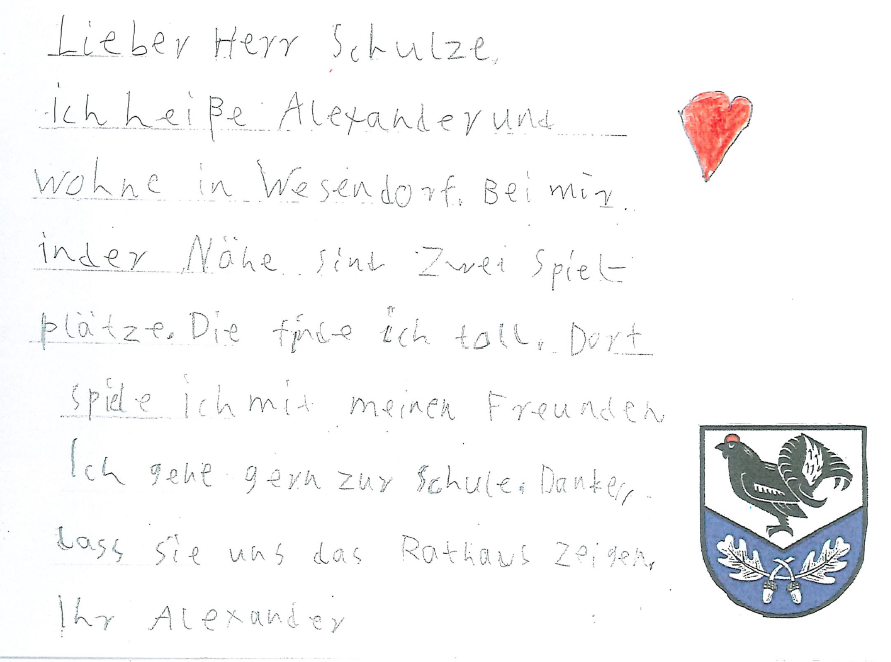 Lieber Herr Schulze,
ich heiße Alexander und
wohne in Wesendorf. Bei mir
in der Nähe sind zwei Spiel-
plätze. Die finde ich toll. Dort
spiele ich mit meinen Freunden
Ich gehe gern zur Schule. Danke,
dass sie uns das Rathaus zeigen.
Ihr Alexander